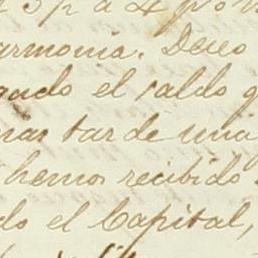 armonia. Deseo
gado el saldo q
mas tarde una
hemos recibido
do el Capital,